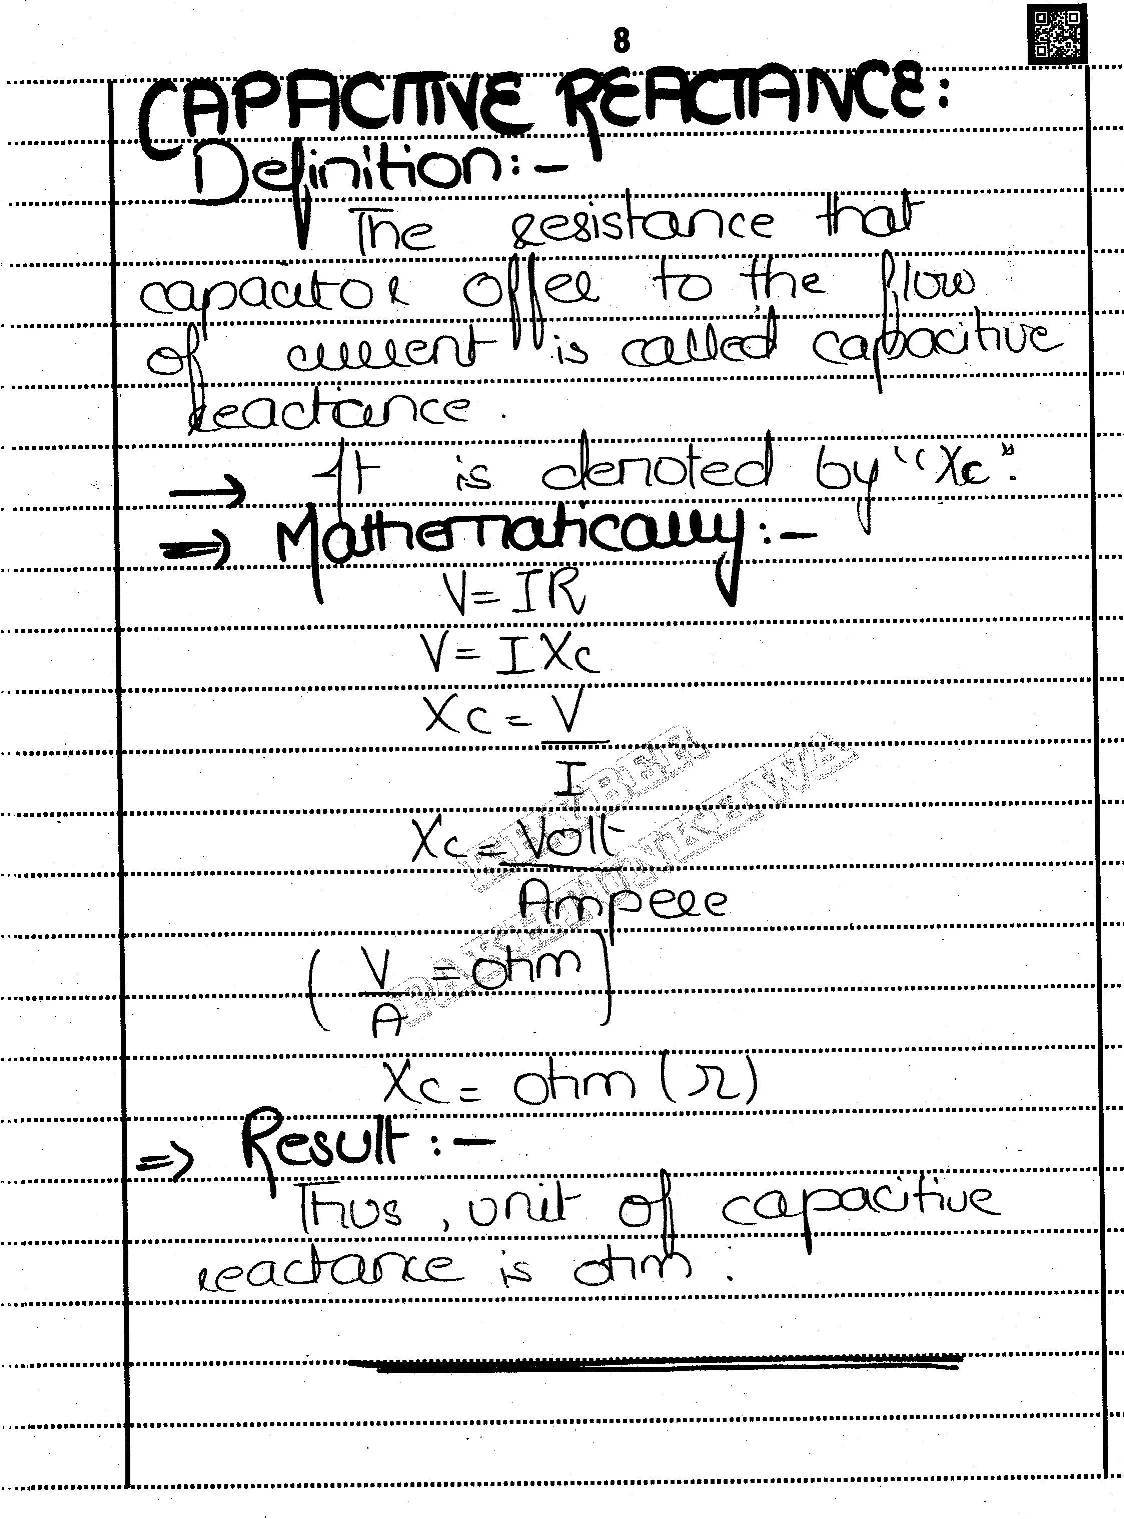 8
CAPACITIVE REACTANCE:
Definition:-
The resistance that
capacitor offer to the flow
of current is called capacitive
reactance.
→ It is denoted by "Xc".
⇒ Mathematically:-
V = IR
V = IXc
Xc = V
I
Xc = Volt
Ampere
( V = ohm )
A
Xc = ohm (Ω)
⇒ Result:-
Thus, unit of capacitive
reactance is ohm.